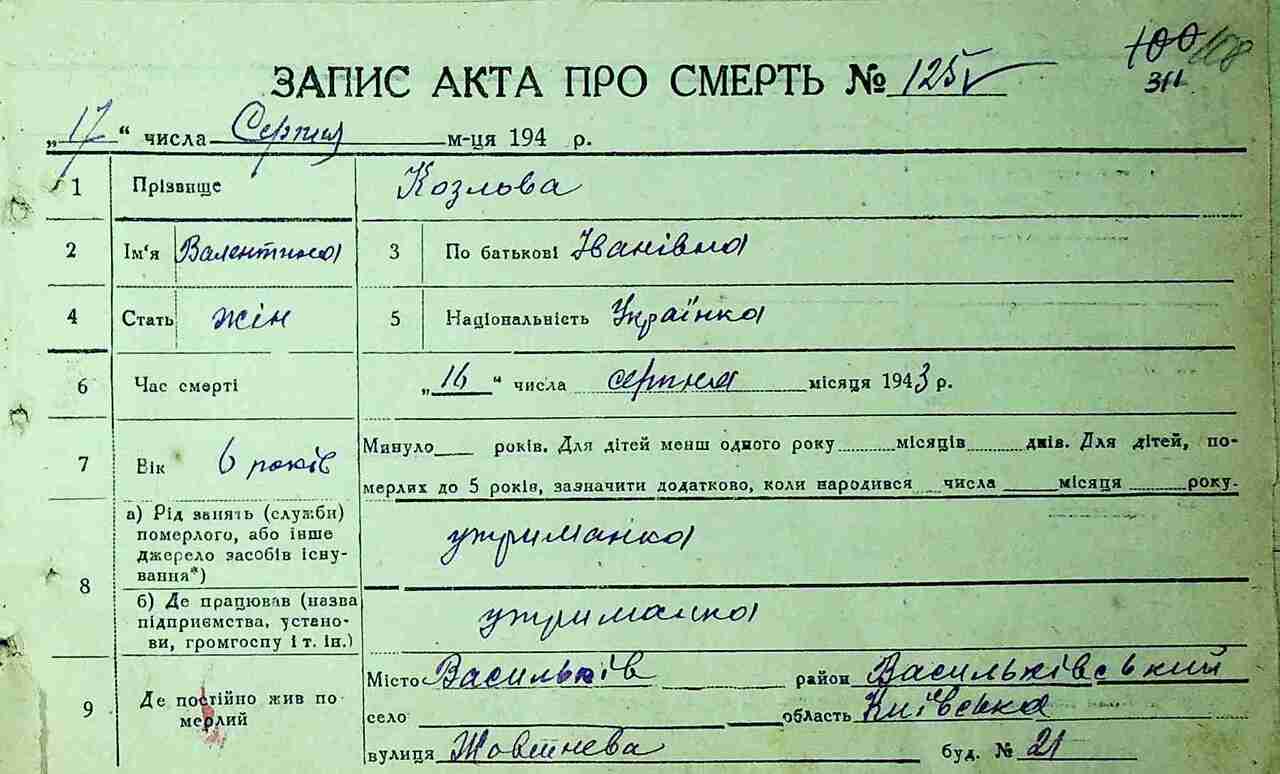 100 108
311
ЗАПИС АКТА ПРО СМЕРТЬ № 125
„17“ числа Серпня м-ця 194 р.
1 Прізвище Козлова
2 Ім‘я Валентина 3 По батькові Іванівна
4 Стать жін 5 Національність Українка
6 Час смерті „16“ числа серпня місяця 1943 р.
7 Вік 6 років Минуло років. Для дітей менш одного року місяців днів. Для дітей, по-
мерлих до 5 років, зазначити додатково, коли народився числа місяця року.
8 а) Рід занять (служби)
померлого, або інше
джерело засобів існу-
вання*) утриманка
б) Де працював (назва
підприємства, установ-
ви, громгоспу і т. ін.) утриманка
9 Де постійно жив по
мерлий
Місто Васильків район Васильківський
село область Київська
вулиця Жовтнева буд. № 21